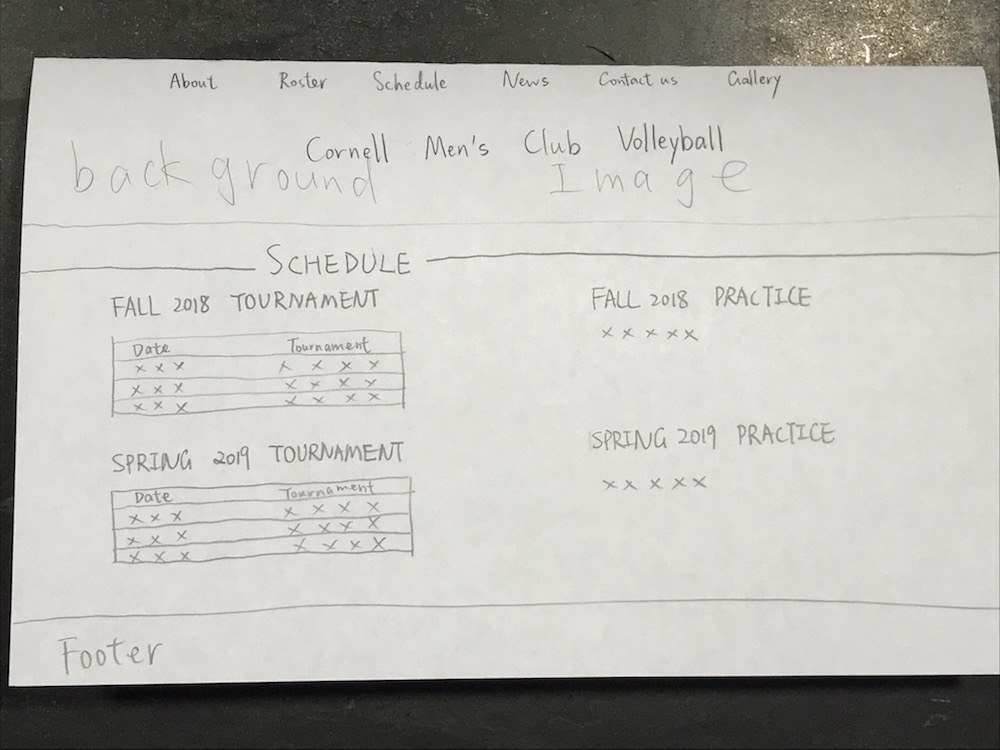 About Roster Schedule News Contact us Gallery
Cornell Men's Club Volleyball
background Image
SCHEDULE
FALL 2018 TOURNAMENT
Date Tournament
x x x x x x x
x x x x x x x
x x x x x x x
SPRING 2019 TOURNAMENT
Date Tournament
x x x x x x x
x x x x x x x
x x x x x x x
FALL 2018 PRACTICE
x x x x x
SPRING 2019 PRACTICE
x x x x x
Footer